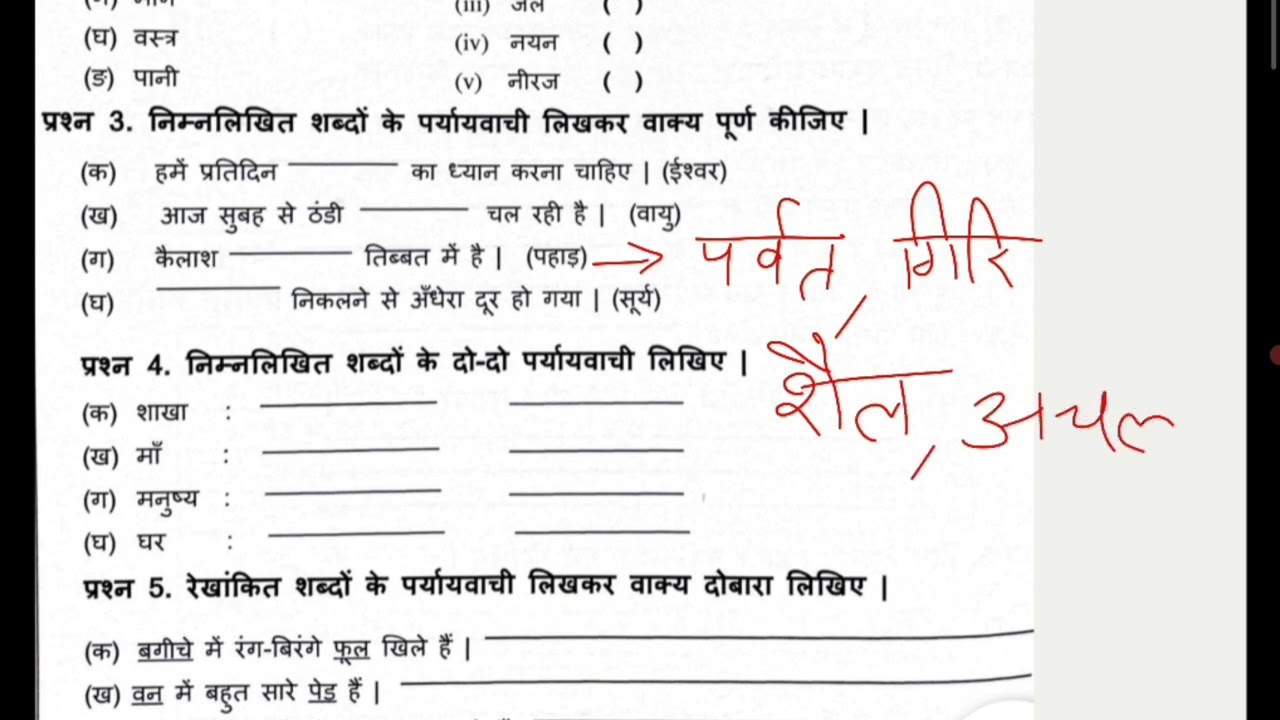 (iii) जल ( )
(घ) वस्त्र (iv) नयन ( )
(ङ) पानी (v) नीरज ( )
प्रश्न 3. निम्नलिखित शब्दों के पर्यायवाची लिखकर वाक्य पूर्ण कीजिए |
(क) हमें प्रतिदिन ________ का ध्यान करना चाहिए | (ईश्वर)
(ख) आज सुबह से ठंडी ________ चल रही है | (वायु)
(ग) कैलाश ________ तिब्बत में है | (पहाड़) → पर्वत, गिरि
(घ) ________ निकलने से अँधेरा दूर हो गया | (सूर्य)
शैल, अचल
प्रश्न 4. निम्नलिखित शब्दों के दो-दो पर्यायवाची लिखिए |
(क) शाखा : ________ ________
(ख) माँ : ________ ________
(ग) मनुष्य : ________ ________
(घ) घर : ________ ________
प्रश्न 5. रेखांकित शब्दों के पर्यायवाची लिखकर वाक्य दोबारा लिखिए |
(क) बगीचे में रंग-बिरंगे फूल खिले हैं | ________
(ख) वन में बहुत सारे पेड हैं | ________